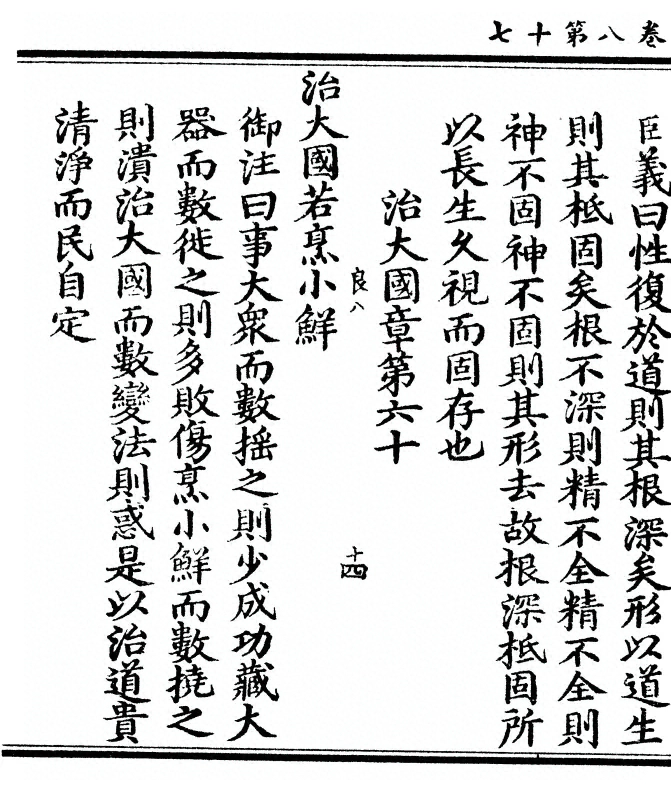 卷八第十七
臣義曰性復於道則其根深矣形以道生
則其柢固矣根不深則精不全精不全則
神不固神不固則其形去故根深柢固所
以長生久視而固存也
治大國章第六十
良八
十四
治大國若烹小鮮
御注曰事大衆而數揺之則少成功藏大
器而數徙之則多敗傷烹小鮮而數撓之
則潰治大國而數變法則惑是以治道貴
清淨而民自定